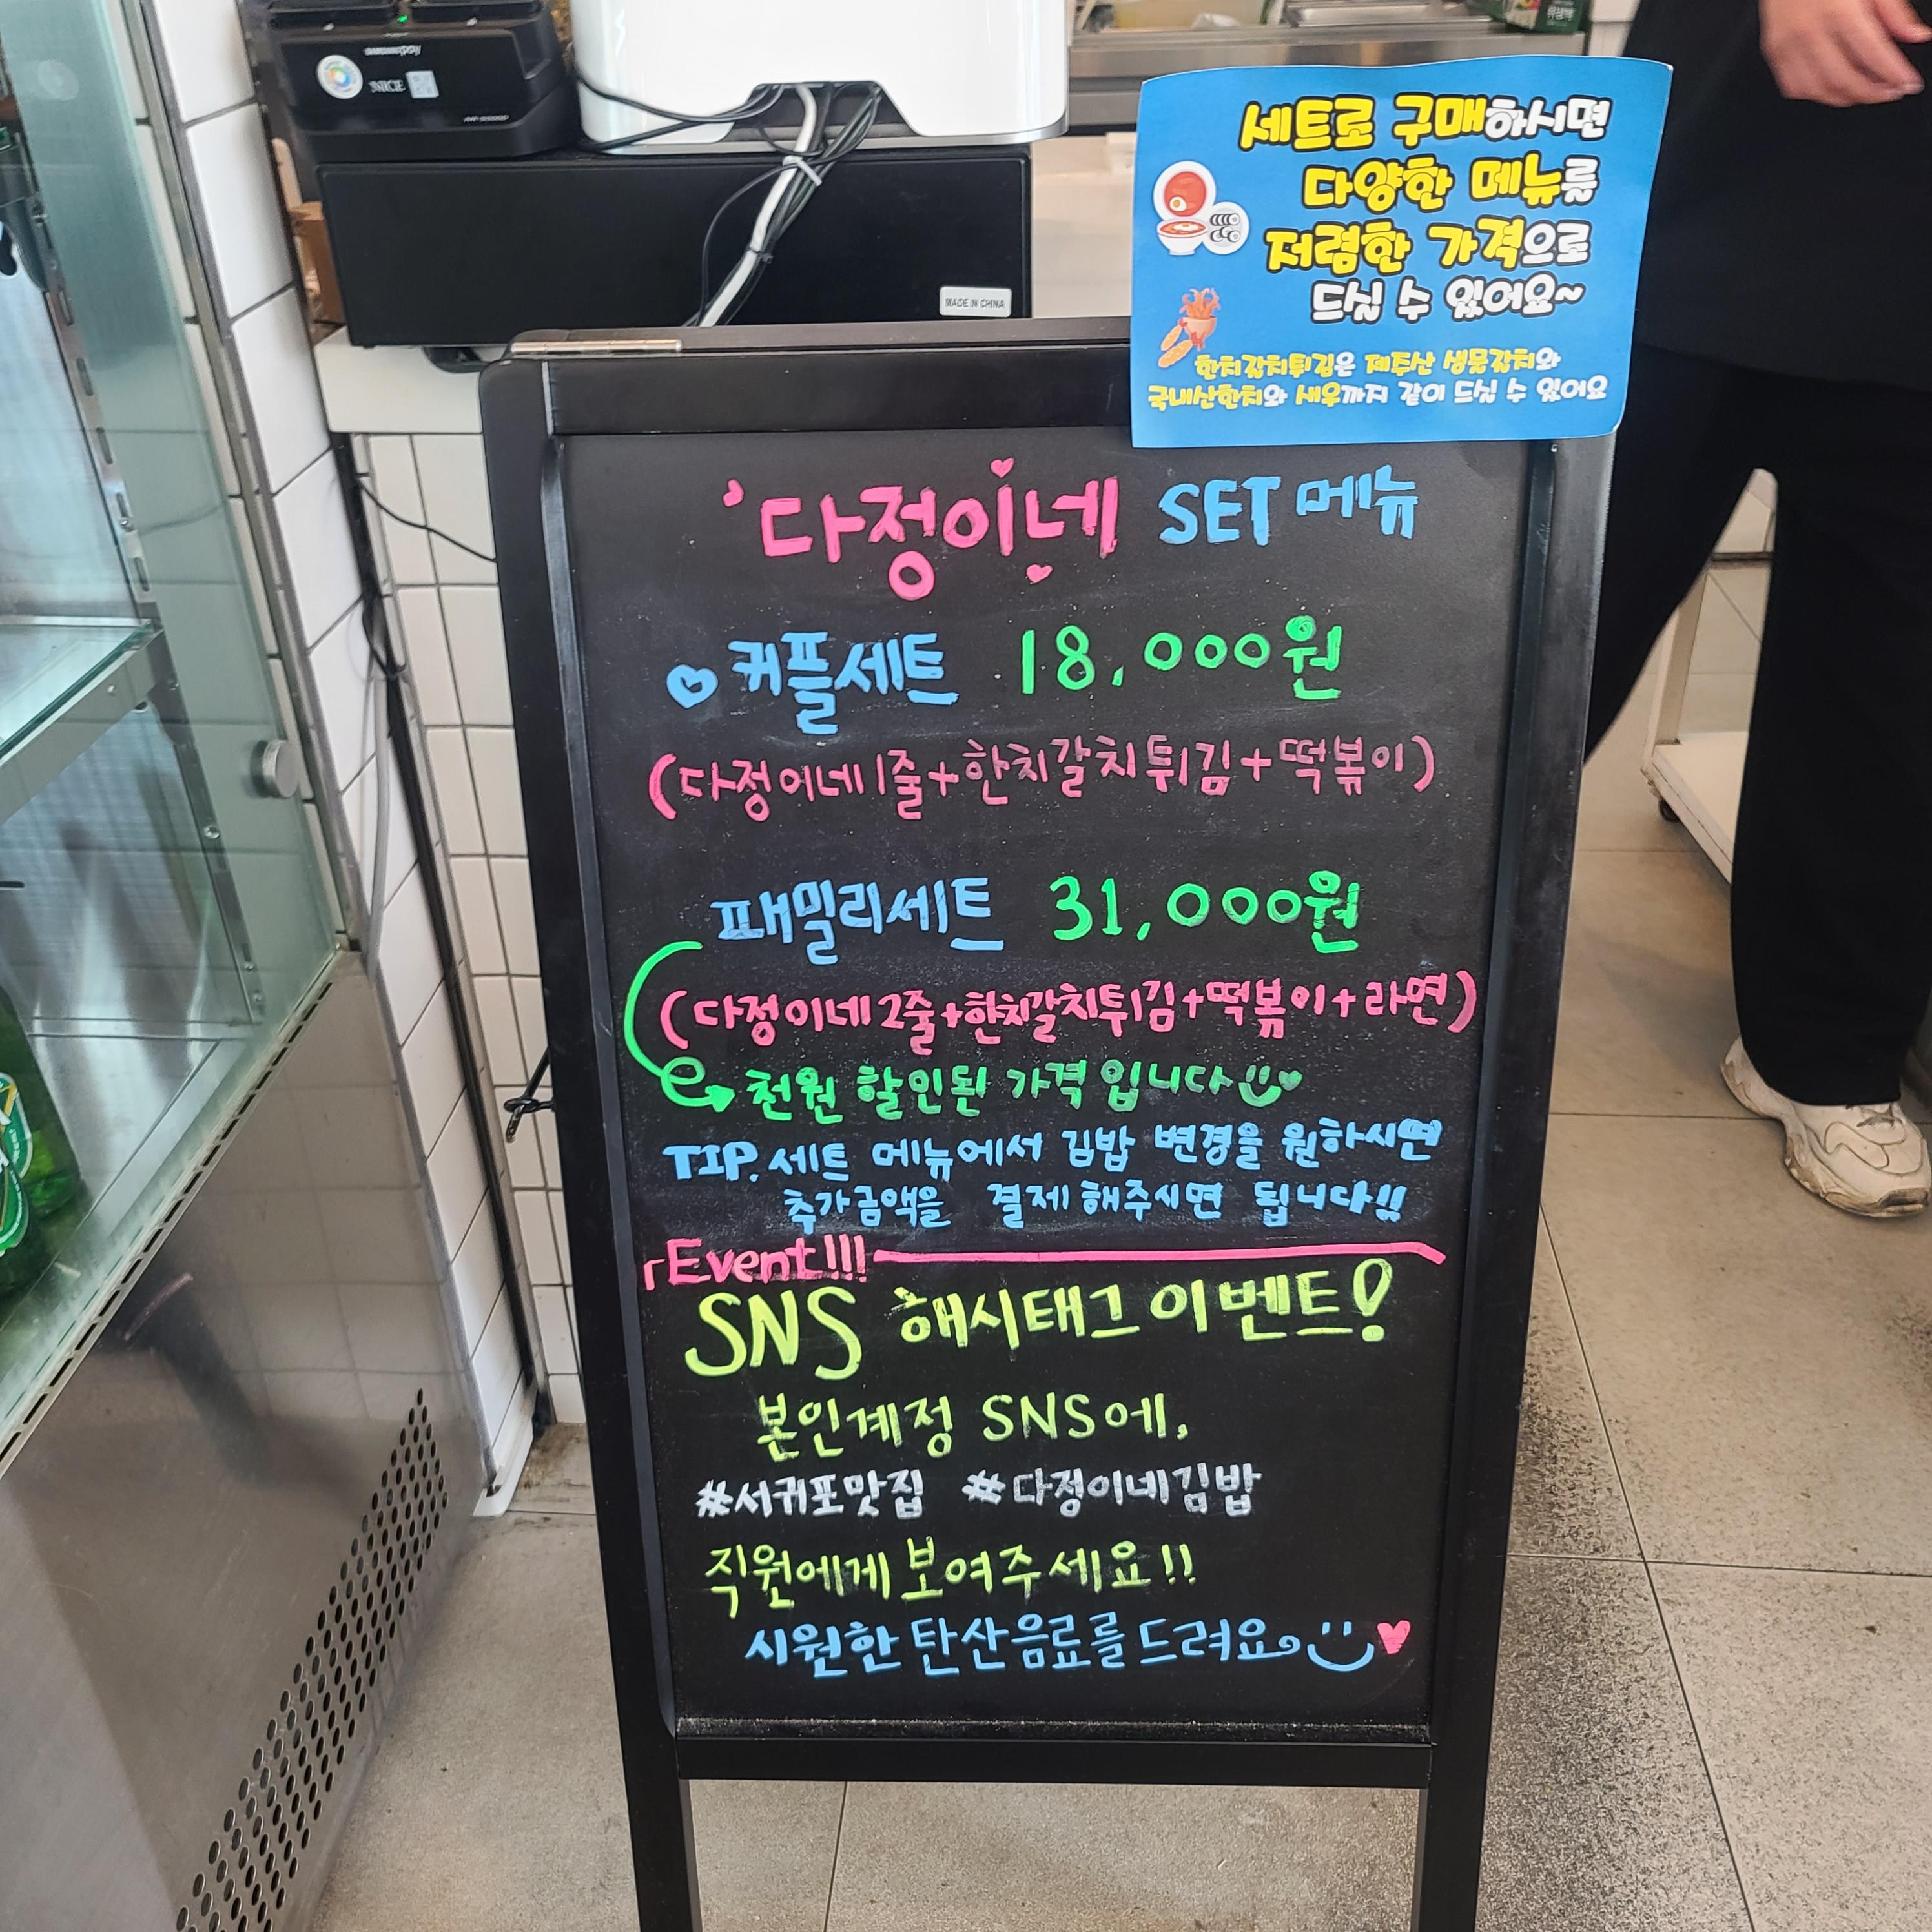 SAMSUNG pay
NICE
MADE IN CHINA
세트로 구매하시면
다양한 메뉴를
저렴한 가격으로
드실 수 있어요~
한치갈치튀김은 제주산 생물갈치와
국내산한치와 새우까지 같이 드실 수 있어요
'다정이네 SET 메뉴
커플세트 18,000원
(다정이네1줄+한치갈치튀김+떡볶이)
패밀리세트 31,000원
(다정이네2줄+한치갈치튀김+떡볶이+라면)
천원 할인된 가격 입니다
TIP. 세트 메뉴에서 김밥 변경을 원하시면
추가금액을 결제해주시면 됩니다!!
Event!!!
SNS 해시태그이벤트!
본인계정 SNS에,
#서귀포맛집 #다정이네김밥
직원에게 보여주세요!!
시원한 탄산음료를드려요